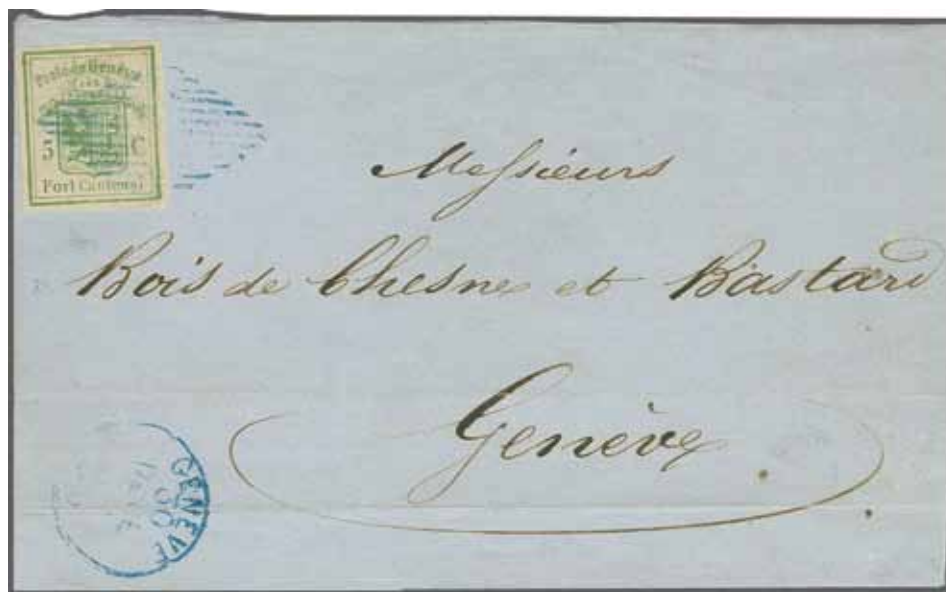 Poste de Genève
5 C
Port Cantonal
Messieurs
Bois de Chesne et Bastard
Genève
GENÈVE